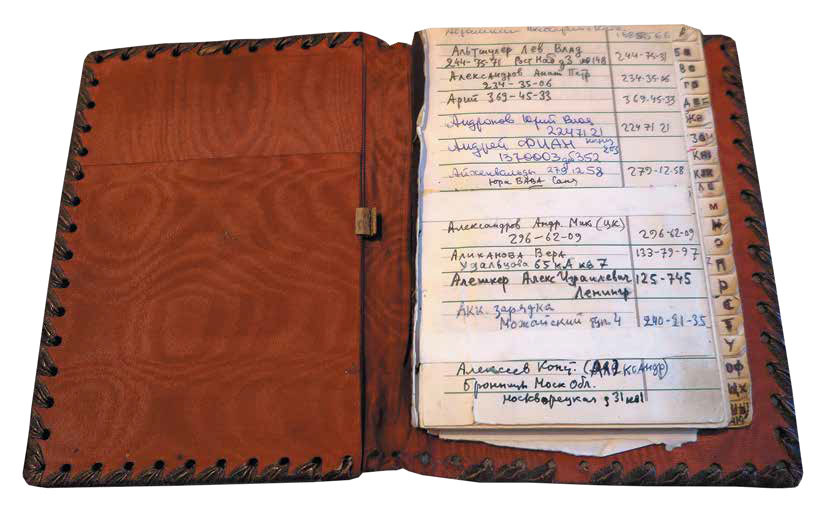 Альтшулер Лев Влад 244-75-31
244-75-71 Рост Наб д3 кв 148
Александров Анат Петр 234-35-06
234-35-06
Арий 369-45-33 369-45-33
Андронов Юрий Влад
2247121 2247121
Андрей ФИАН
1370003 352
Айхенвальды 279 12 58 279-12-58
Юра ВАВА Саня
Александров Андр. Мих (ЦК)
296-62-09 296-62-09
Алиханова Вера 133-79-97
Удальцова 65 к А кв 7
Алешкер Алекс Израилевич 125-745
Ленингр
Акк. зарядка
Можайский 4 240-21-35
Алексеев Конст. (Александр)
Бронницы Моск Обл.
Москворецкая д 31 кв 1
М
Н
О
П
Р
С
Т
У